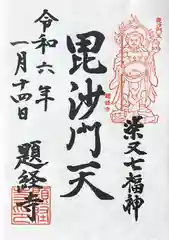 柴又七福神
毘沙門天
令和六年
一月十四日
題経寺